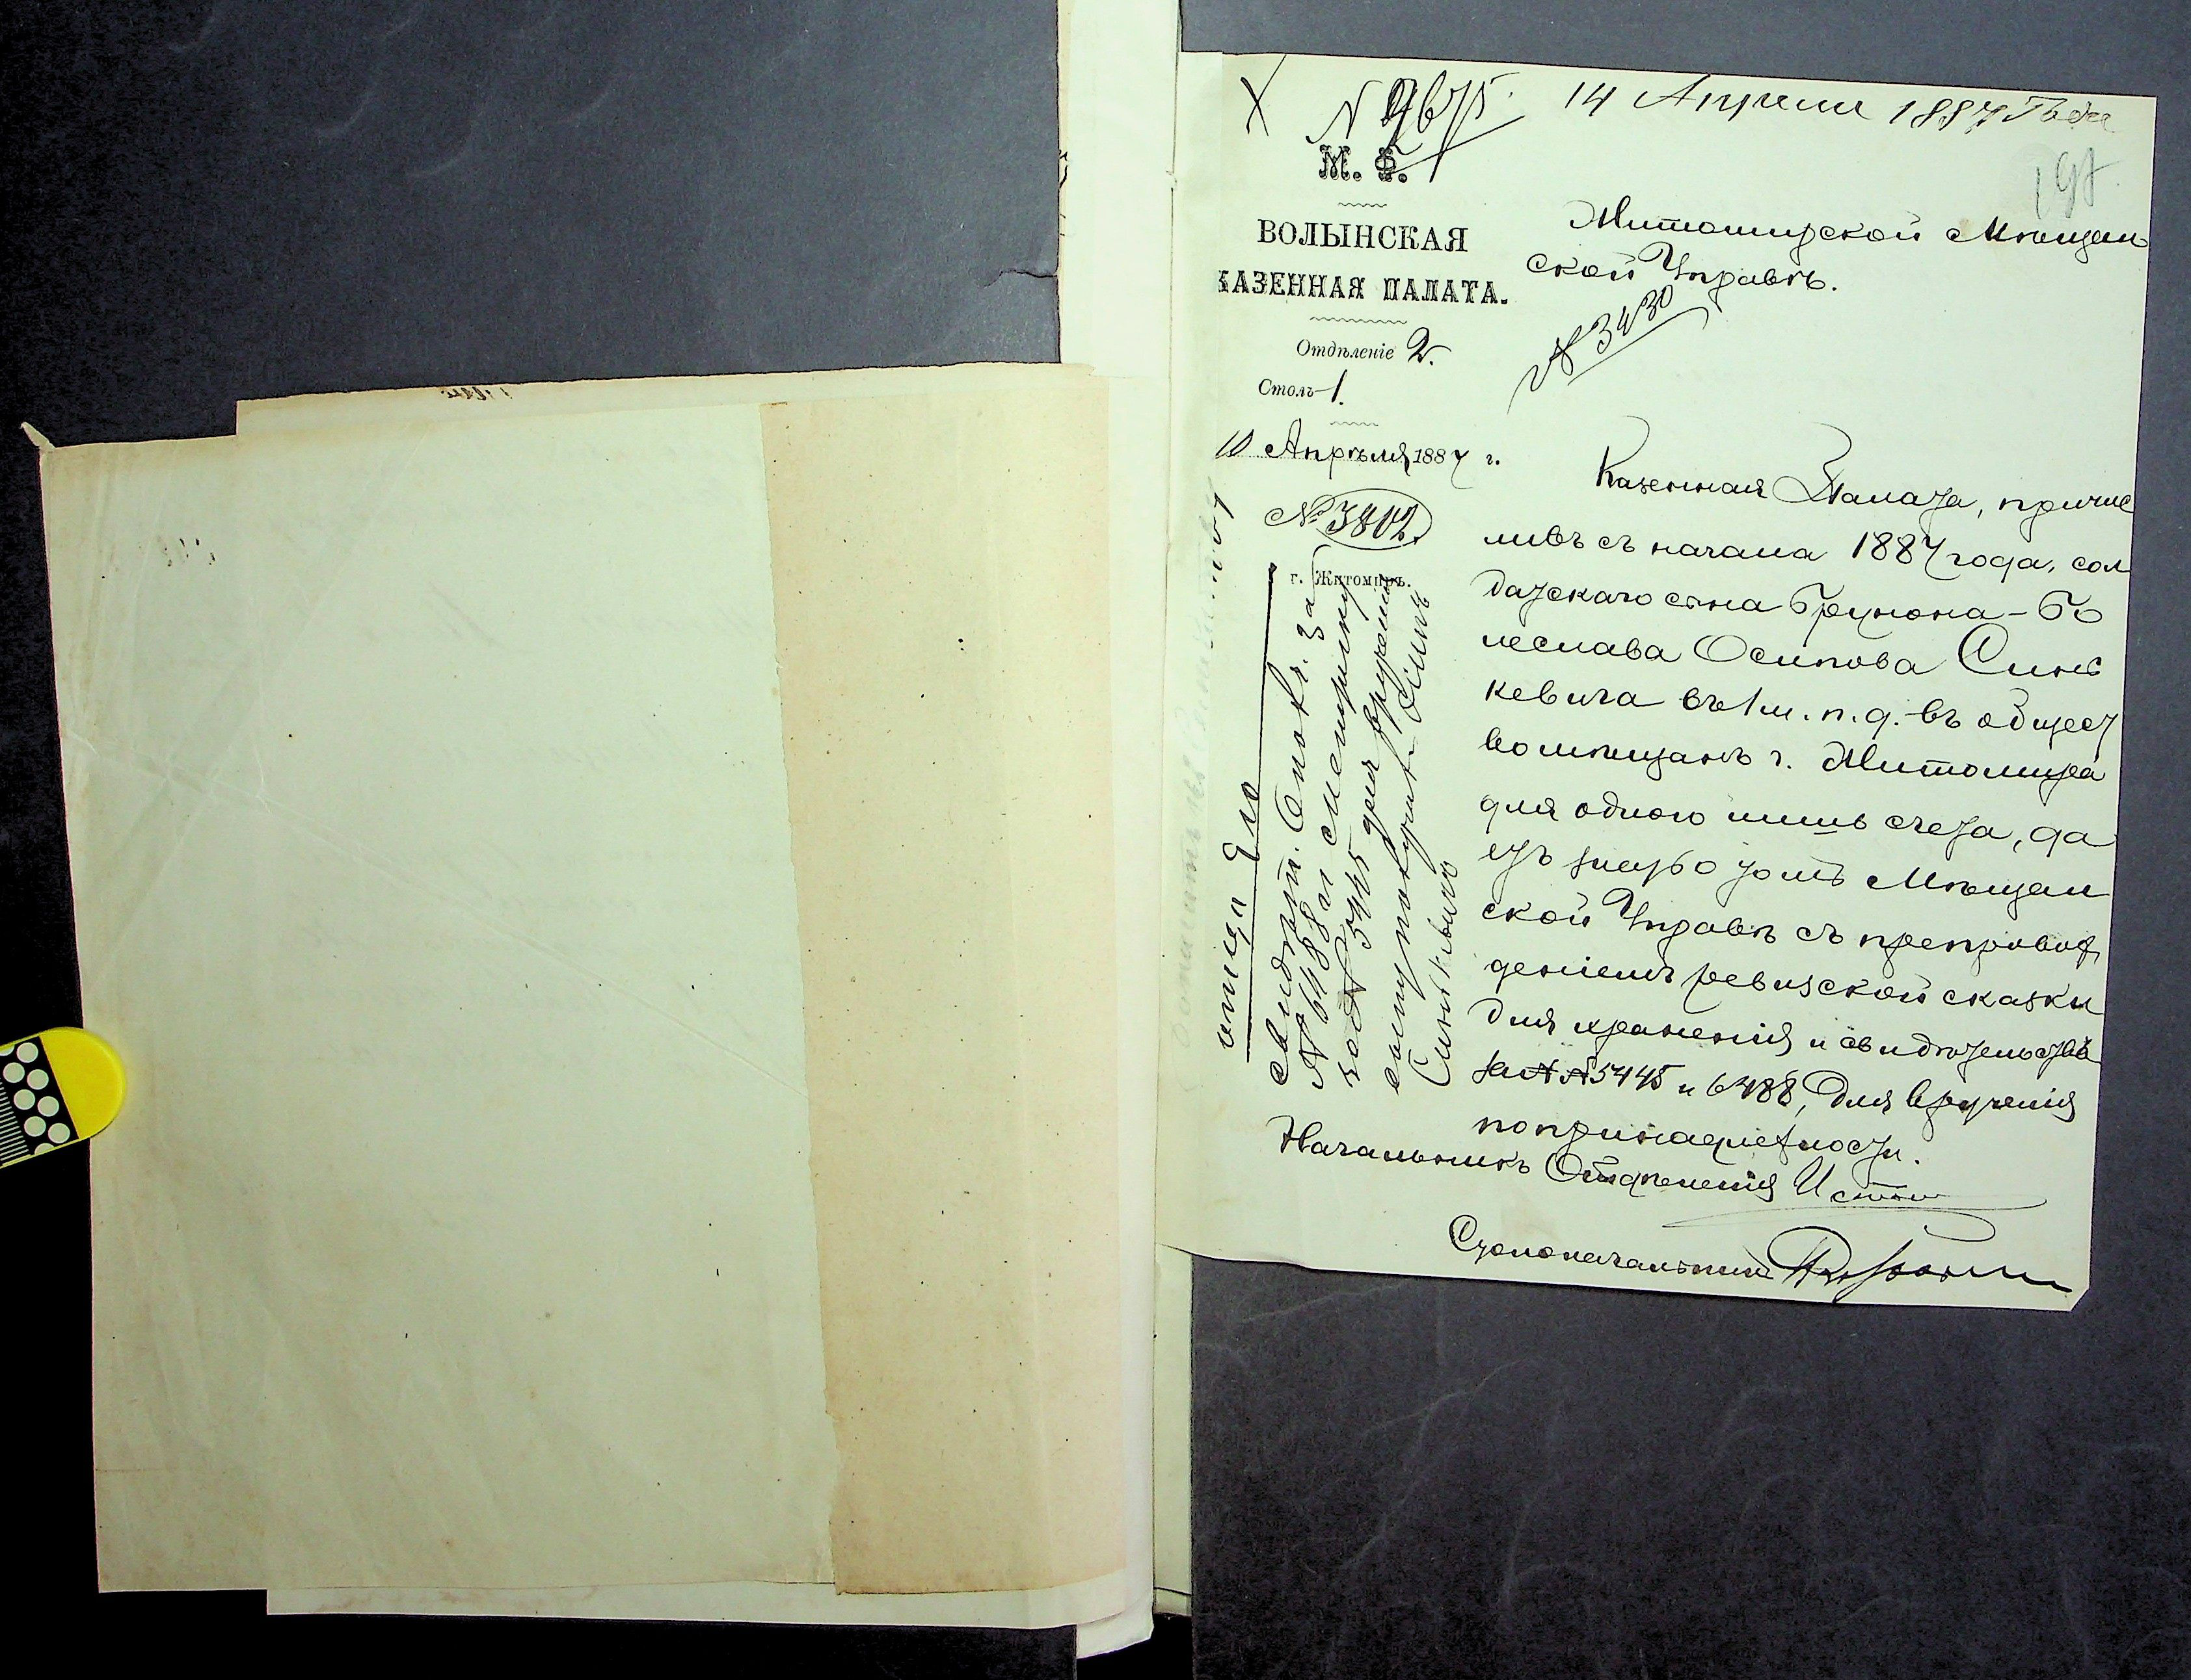 N 9675. 14 Апреля 1887 Года
197
М. Ф.
ВОЛЫНСКАЯ
КАЗЕННАЯ ПАЛАТА.
Отдѣленіе 2.
Столъ 1.
10 Апрѣля 1887 г.
№ 3802.
г. Житомиръ.
Житомирской Мѣщан
ской Управѣ.
№ 3430
Казенная Палата, причис
ливъ съ начала 1887 года, сол
датскаго сына Брунона-Бо
леслава Осипова Синь
кевича въ 1 м. п. д. въ общест
во мѣщанъ г. Житомира
для одного лишь счета, да
етъ знать о томъ Мѣщан
ской Управѣ съ препровож
деніемъ ревизской сказки
для храненія и свидѣтельства
за №№ 5445 и 6488, для врученія
по принадлежности.
Начальникъ Отдѣленія
Столоначальникъ
свидѣт. за
№ 6488 и Метрику
№ 5445 для врученія
получилъ
Синькевичъ